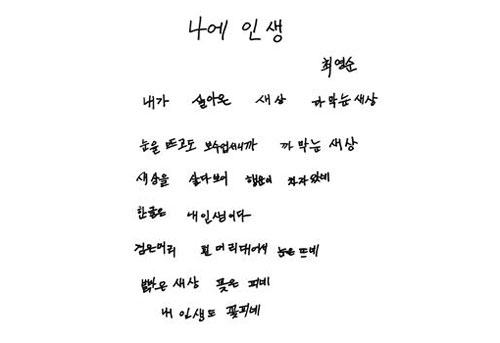 나에 인생
최영순
내가 살아온 새상 까막눈 새상
눈을 뜨고도 보수업서니까 까막눈 새상
새상을 살다보이 행운이 차자왔네
한글은 내 인생이다
검은머리 흰 머리대어서 눈은 뜨네
밝은 새상 꽃은 피네
내 인생도 꽃피네